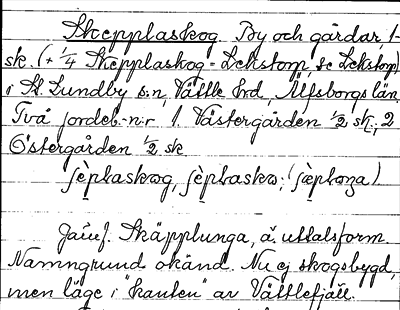 Skepplaskog. By och gårdar 1
sk. (+ 1/4 Skepplaskog - Lekstorp, se Lekstorp)
i St. Lundby s:n, Vättle hrd, Älfsborgs län.
Två jordeb.-n:r 1. Västergården 1/2 sk.; 2
Östergården 1/2 sk.
ʃèplaskog, ʃèplasko; (ʃæploga)
Jämf. Skäpplunga, ä. uttalsform.
Namngrund okänd. Nu ej skogsbygd,
men läge i "kanten" av Vättlefjäll.